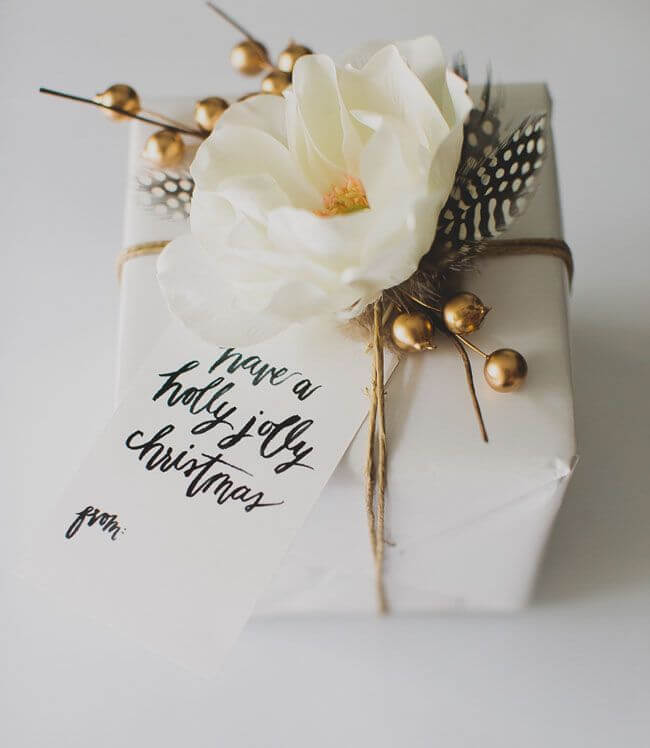 have a
holly jolly
christmas
from: